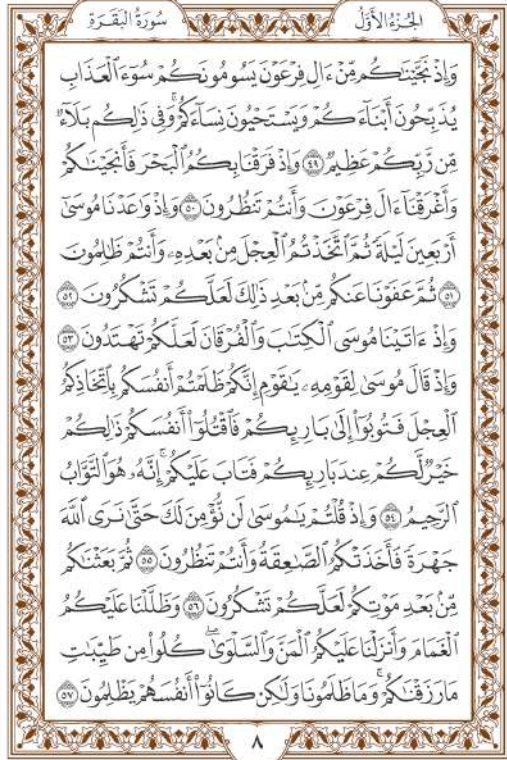 الجُزْءُ الأَوَّلُ
سُورَةُ الْبَقَرَةِ
وَإِذْ نَجَّيْنَٰكُم مِّنْ ءَالِ فِرْعَوْنَ يَسُومُونَكُمْ سُوٓءَ ٱلْعَذَابِ
يُذَبِّحُونَ أَبْنَآءَكُمْ وَيَسْتَحْيُونَ نِسَآءَكُمْۚ وَفِى ذَٰلِكُم بَلَآءٌ
مِّن رَّبِّكُمْ عَظِيمٌ ٤٩ وَإِذْ فَرَقْنَا بِكُمُ ٱلْبَحْرَ فَأَنجَيْنَٰكُمْ
وَأَغْرَقْنَآ ءَالَ فِرْعَوْنَ وَأَنتُمْ تَنظُرُونَ ٥٠ وَإِذْ وَٰعَدْنَا مُوسَىٰٓ
أَرْبَعِينَ لَيْلَةً ثُمَّ ٱتَّخَذْتُمُ ٱلْعِجْلَ مِنۢ بَعْدِهِۦ وَأَنتُمْ ظَٰلِمُونَ
٥١ ثُمَّ عَفَوْنَا عَنكُم مِّنۢ بَعْدِ ذَٰلِكَ لَعَلَّكُمْ تَشْكُرُونَ ٥٢
وَإِذْ ءَاتَيْنَا مُوسَى ٱلْكِتَٰبَ وَٱلْفُرْقَانَ لَعَلَّكُمْ تَهْتَدُونَ ٥٣
وَإِذْ قَالَ مُوسَىٰ لِقَوْمِهِۦ يَٰقَوْمِ إِنَّكُمْ ظَلَمْتُمْ أَنفُسَكُم بِٱتِّخَاذِكُمُ
ٱلْعِجْلَ فَتُوبُوٓا۟ إِلَىٰ بَارِئِكُمْ فَٱقْتُلُوٓا۟ أَنفُسَكُمْ ذَٰلِكُمْ
خَيْرٌ لَّكُمْ عِندَ بَارِئِكُمْ فَتَابَ عَلَيْكُمْۚ إِنَّهُۥ هُوَ ٱلتَّوَّابُ
ٱلرَّحِيمُ ٥٤ وَإِذْ قُلْتُمْ يَٰمُوسَىٰ لَن نُّؤْمِنَ لَكَ حَتَّىٰ نَرَى ٱللَّهَ
جَهْرَةً فَأَخَذَتْكُمُ ٱلصَّٰعِقَةُ وَأَنتُمْ تَنظُرُونَ ٥٥ ثُمَّ بَعَثْنَٰكُم
مِّنۢ بَعْدِ مَوْتِكُمْ لَعَلَّكُمْ تَشْكُرُونَ ٥٦ وَظَلَّلْنَا عَلَيْكُمُ
ٱلْغَمَامَ وَأَنزَلْنَا عَلَيْكُمُ ٱلْمَنَّ وَٱلسَّلْوَىٰۖ كُلُوا۟ مِن طَيِّبَٰتِ
مَا رَزَقْنَٰكُمْۚ وَمَا ظَلَمُونَا وَلَٰكِن كَانُوٓا۟ أَنفُسَهُمْ يَظْلِمُونَ ٥٧
٨